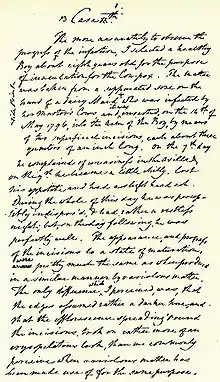 Case
The more accurately to observe the
progress of the infection, I selected a healthy
Boy about eight years old for the purpose
of inoculation for the Cowpox. The matter
was taken from a suppurated sore on the
hand of a Dairy Maid who was infected by
her Masters Cows and inserted on the 14th of
May 1796 into the arm of the Boy by means
of two superficial incisions each about three
quarters of an inch long. On the 7th day
he complained of uneasiness in the axilla &
on the 9th he became a little chilly, lost
his appetite and had a slight head ach.
During the whole of this day he was percep-
tibly indispos'd, & had rather a restless
night; but on the day following he was
perfectly well. The appearance and progress
of the incisions to a state of maturation
were pretty much the same as when produced
in a similar manner by variolous matter
The only difference which I perceived was, that
the edges assumed rather a darker hue, and
that the efflorescence spreading round
the incisions, took on rather more of an
erysipelatous look, than we commonly
perceive when variolous matter has
been made use of for the same purpose.